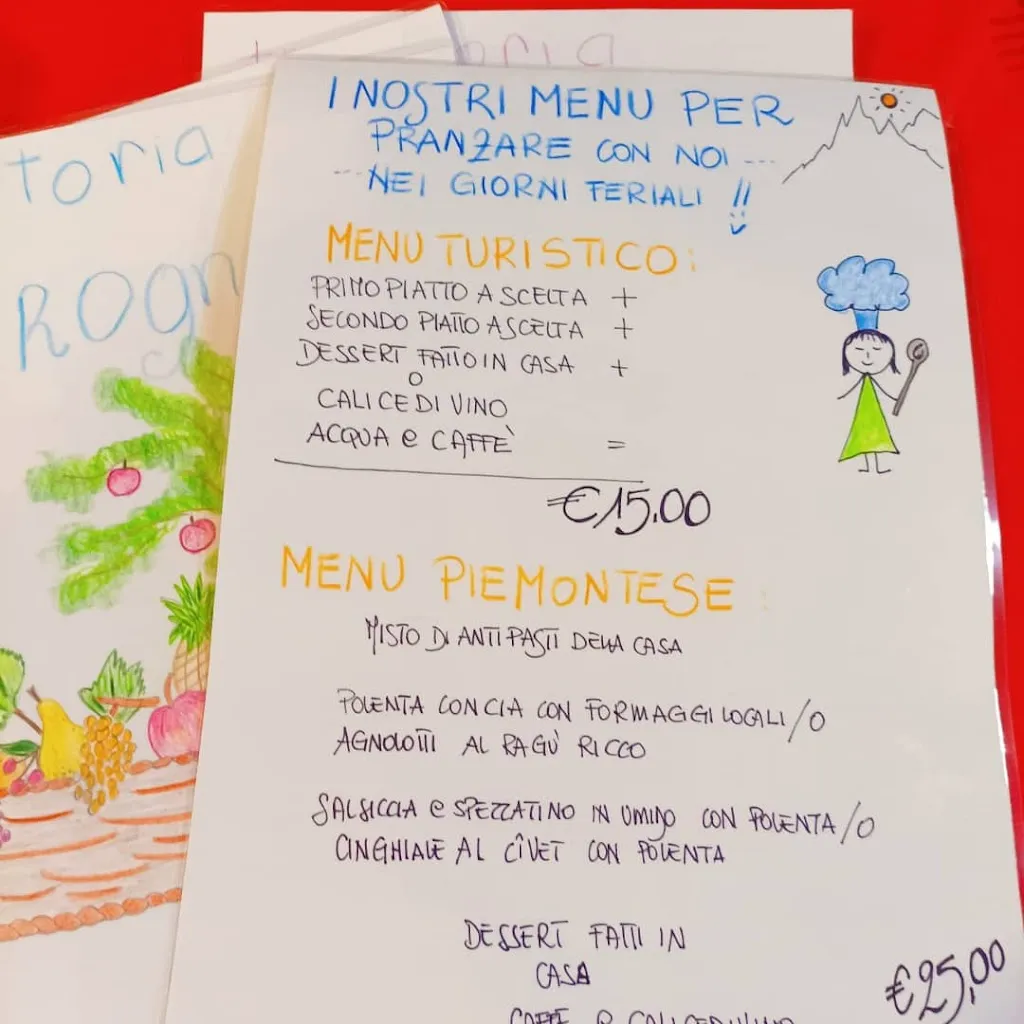 toria
I NOSTRI MENU PER
PRANZARE CON NOI ---
--- NEI GIORNI FERIALI !!
MENU TURISTICO:
PRIMO PIATTO A SCELTA +
SECONDO PIATTO A SCELTA +
DESSERT FATTO IN CASA +
O
CALICE DI VINO
ACQUA e CAFFÈ =
€15.00
MENU PIEMONTESE :
MISTO DI ANTIPASTI DELLA CASA
POLENTA CONCIA CON FORMAGGI LOCALI /O
AGNOLOTTI AL RAGÙ RICCO
SALSICCIA e SPEZZATINO IN UMIDO CON POLENTA /O
CINGHIALE AL CÎVET CON POLENTA
DESSERT FATTI IN
CASA
€25,00
CAFFÈ e CALICE DI VINO
Toria
ROGN